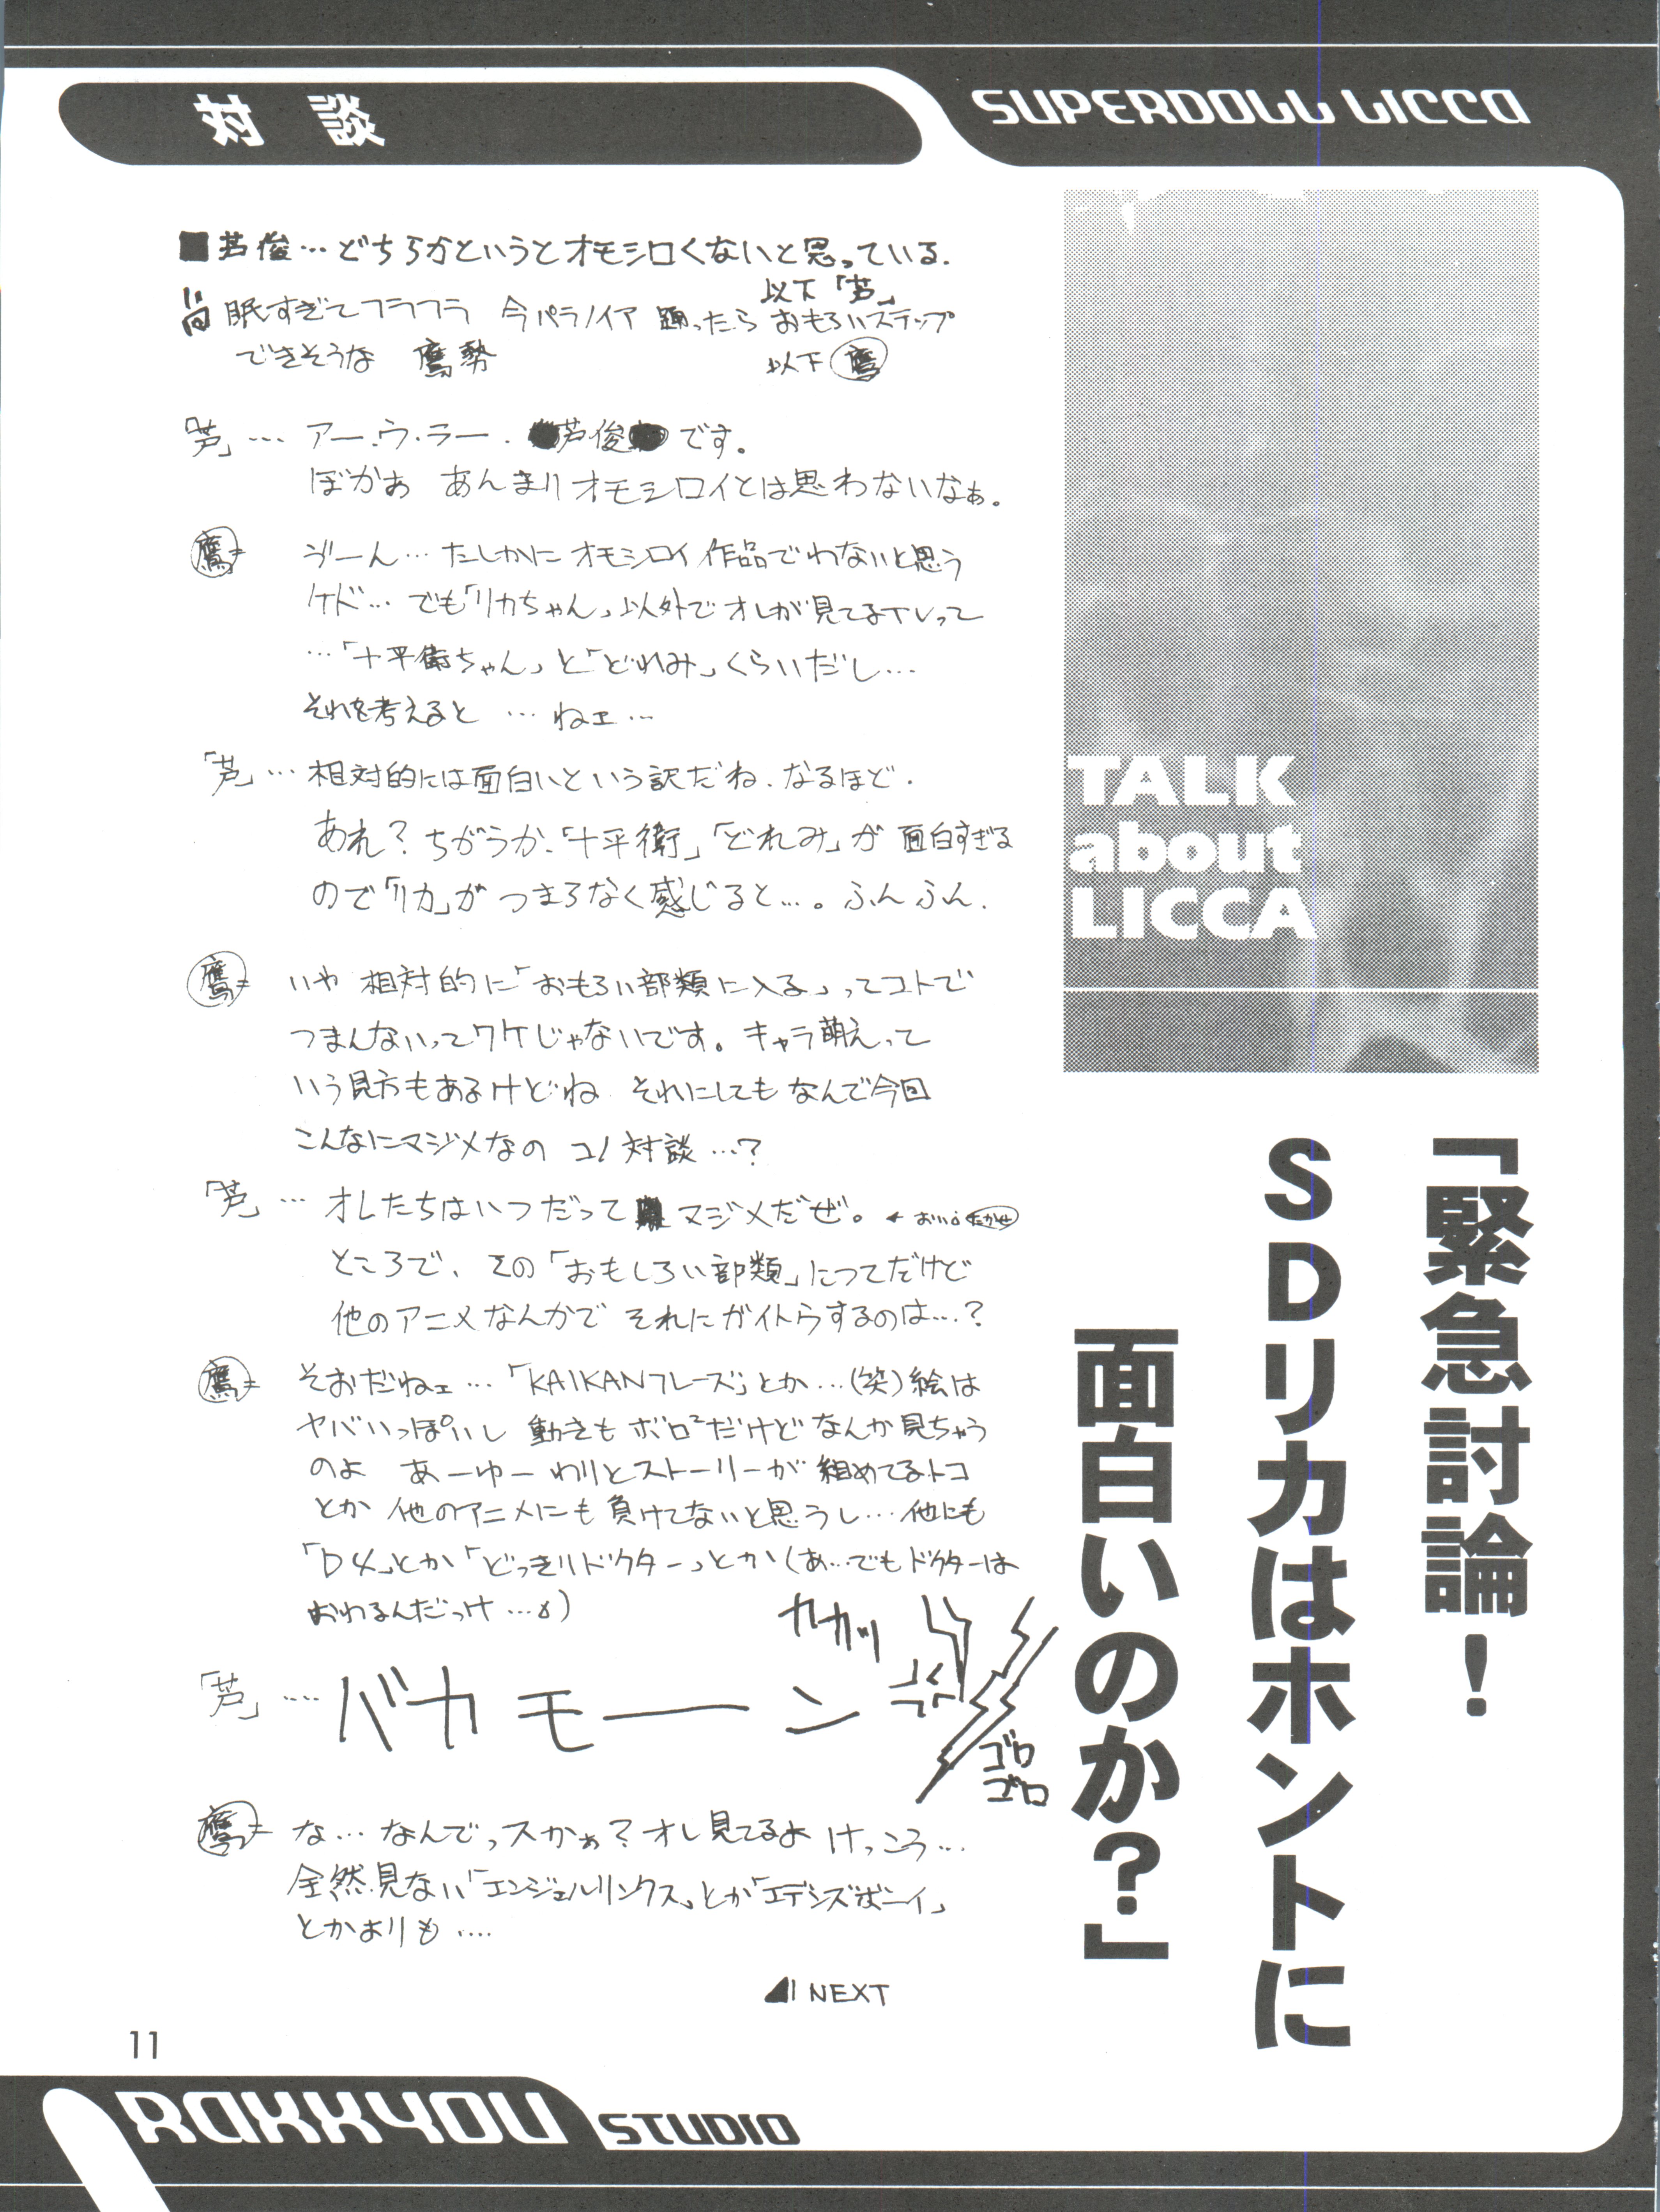 対談
SUPERDOLL LICCA
TALK
about
LICCA
「緊急討論！
SDリカはホントに
面白いのか？」
■芦俊…どちらかというとオモシロくないと思っている.
以下「芦」
眠すぎてフラフラ 今パラノイア 踊ったら おもろいステップ
できそうな 鷹勢 以下 鷹
「芦」… アー.ウ.ラー. 芦俊 です。
ぼかぁ あんまりオモシロイとは思わないなぁ。
鷹= ゔーん…たしかに オモシロイ作品でわないと思う
ケド…でも「リカちゃん」以外でオレが見てるTVって
…「十平衛ちゃん」と「どれみ」くらいだし…
それを考えると …ねェ…
「芦」…相対的には面白いという訳だね.なるほど.
あれ？ちがうか.「十平衛」「どれみ」が 面白すぎる
ので「リカ」が つまらなく感じると…。ふんふん.
鷹= いや 相対的に「おもろい部類に入る」ってコトで
つまんないってワケじゃないです。キャラ萌えって
いう見方もあるけどね それにしても なんで今回
こんなにマジメなの コノ対談…？
「芦」… オレたちはいつだって マジメだぜ。←おい。たかせ
ところで、その「おもしろい部類」につてだけど
他のアニメなんかで それにガイトウするのは…？
鷹= そおだねェ…「KAIKANフレーズ」とか…(笑)絵は
ヤバいっぽいし 動きも ボロ²だけど なんか見ちゃう
のよ あーゆー わりとストーリーが 組めてるトコ
とか 他のアニメにも 負けてないと思うし…他にも
「D4」とか「どっきりドクター」とか(あ…でもドクターは
おわるんだっけ…)
カカッ
「芦」…. バカモーン
ゴロ
ゴロ
鷹= な…なんでっスかぁ？オレ見てるよ けっこう…
全然見ない「エンジェルリンクス」とか「エデンズボーイ」
とかよりも….
NEXT
11
RAKKYOU STUDIO